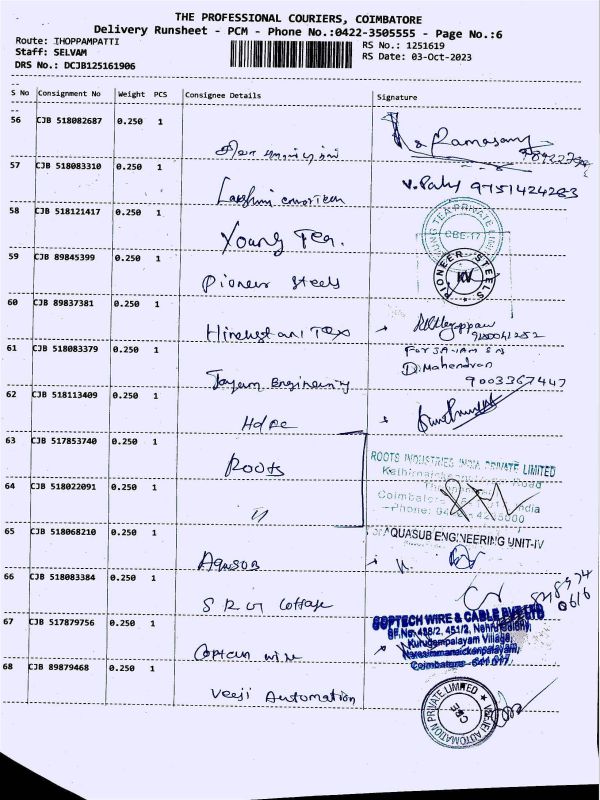 THE PROFESSIONAL COURIERS, COIMBATORE
Delivery Runsheet - PCM - Phone No.:0422-3505555 - Page No.:6
Route: THOPPAMPATTI
Staff: SELVAM
DRS No.: DCJB125161906
RS No.: 1251619
RS Date: 03-Oct-2023
S No Consignment No Weight PCS Consignee Details Signature
56 CJB 518082687 0.250 1
Ramasamy
57 CJB 518083310 0.250 1
Lakshmi
9751424283
58 CJB 518121417 0.250 1
Young Tea.
CBE-17
59 CJB 89845399 0.250 1
Pioneer Steels
PIONEER STEELS
60 CJB 89837381 0.250 1
Hindustani Tex
61 CJB 518083379 0.250 1
Jayam Engineering
D. Mahendran
9003367447
62 CJB 518113409 0.250 1
Hdfc
63 CJB 517853740 0.250 1
Roots
ROOTS INDUSTRIES INDIA PRIVATE LIMITED
64 CJB 518022091 0.250 1
"
Coimbatore
India
65 CJB 518068210 0.250 1
Aquasub
AQUASUB ENGINEERING UNIT-IV
66 CJB 518083384 0.250 1
S R G Cottage
67 CJB 517879756 0.250 1
Coptech wire
COPTECH WIRE & CABLE PVT LTD
SF.No. 438/2, 451/2, Nehru Colony,
Kurugempalayam Village,
Narasimmanaickenpalayam,
Coimbatore - 641 017.
68 CJB 89879468 0.250 1
Veeji Automation
VEEJEI AUTOMATION PRIVATE LIMITED
CBE